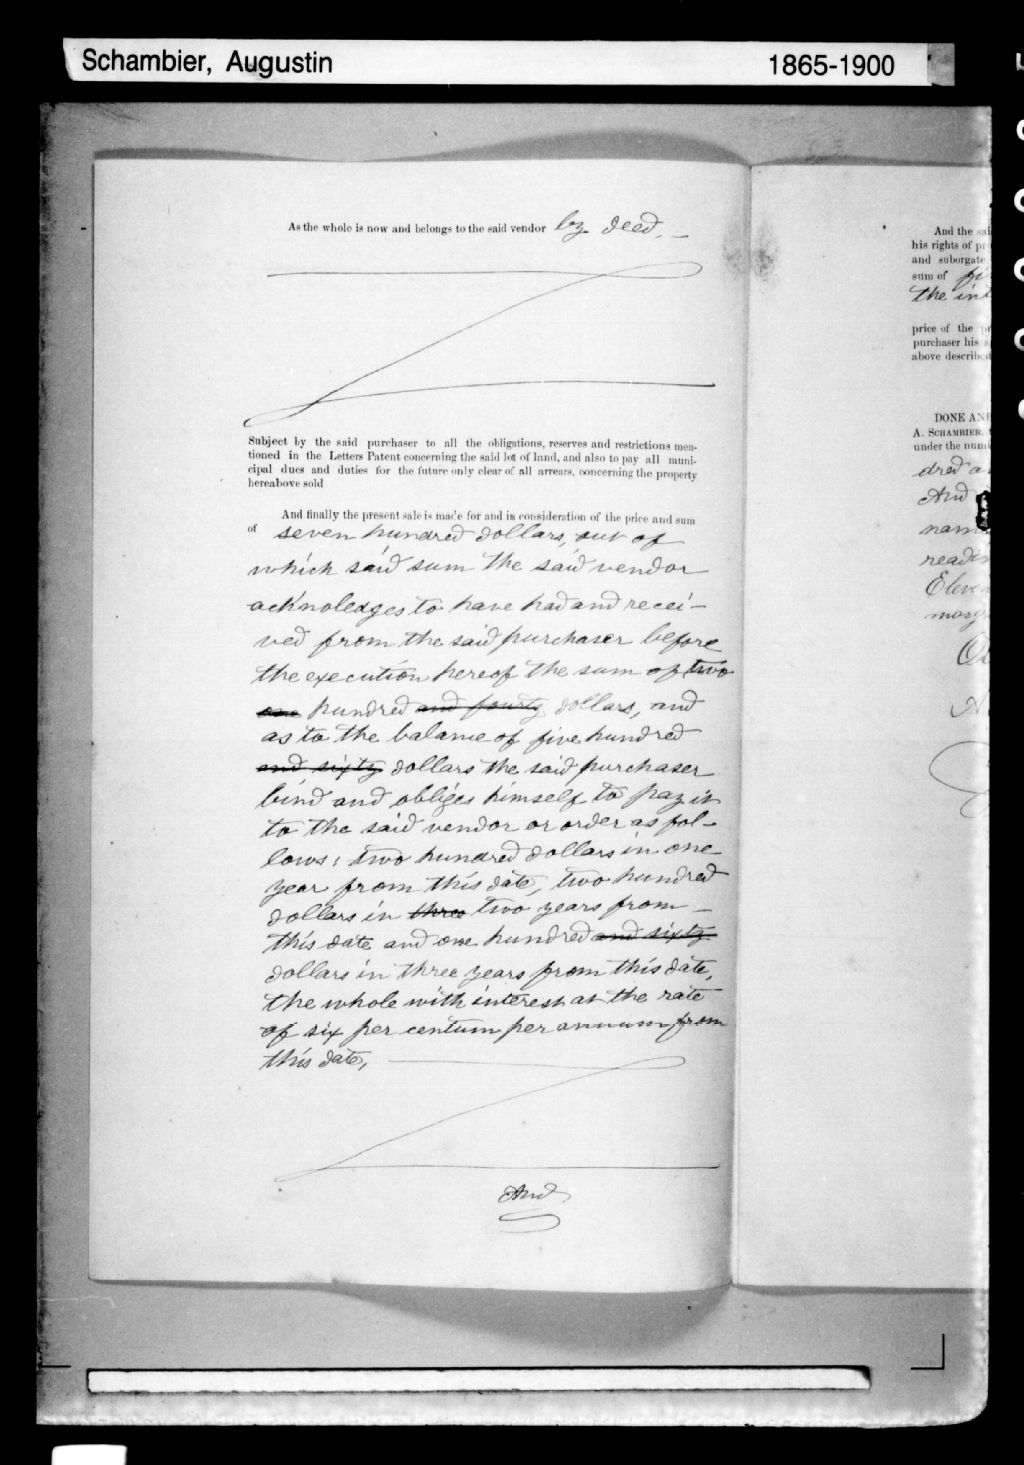 Schambier, Augustin 1865-1900
As the whole is now and belongs to the said vendor by deed. —
Subject by the said purchaser to all the obligations, reserves and restrictions men-
tioned in the Letters Patent concerning the said lot of land, and also to pay all muni-
cipal dues and duties for the future only clear of all arrears, concerning the property
hereabove sold
And finally the present sale is made for and in consideration of the price and sum
of seven hundred dollars, out of
which said sum the said vendor
acknoledges to have had and recei-
ved from the said purchaser before
the execution hereof the sum of two
one hundred and fourty dollars, and
as to the balance of five hundred
and sixty dollars the said purchaser
bind and obliges himself to pay it
to the said vendor or order as fol-
lows; two hundred dollars in one
year from this date, two hundred
dollars in three two years from —
this date and one hundred and sixty
dollars in three years from this date,
the whole with interest at the rate
of six per centum per annum from
this date,
And
And the sai
his rights of p
and suborgate
sum of fi
the int
price of the
purchaser his
above described
DONE AND
A. SCHAMBIER,
under the num
dred a
And
nam
readin
Eleve